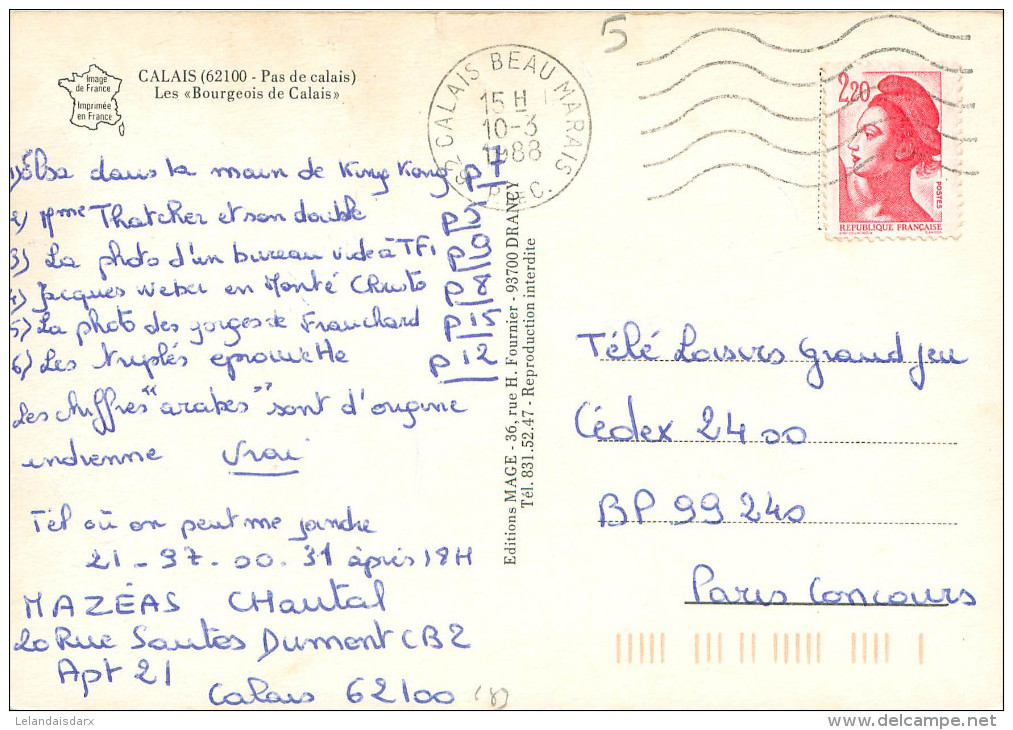 5
Image
de France
Imprimée
en France
CALAIS (62100 - Pas de calais)
Les «Bourgeois de Calais»
62 CALAIS BEAU MARAIS
15 H
10-3
1988
P. DE C.
2,20
POSTES
REPUBLIQUE FRANÇAISE
1) Elsa dans la main de King Kong p 7
2) Mme Thatcher et son double p 5
3) La photo d'un bureau vide à TF1 p 9
4) Jacques Weber en Monté Christo p 8
5) La photo des gorges de Franchard p 15
6) Les triplés eprouvette p 12
Les chiffres "arabes" sont d'origine
indienne Vrai
Tél où on peut me joindre
21 - 97 - 00 - 31 après 18H
MAZÉAS CHantal
20 Rue Santos Dumont CB2
Apt 21
Calais 62100
Editions MAGE - 36, rue H. Fournier - 93700 DRANCY
Tél. 831.52.47 - Reproduction interdite
Télé Loisirs Grand jeu
Cédex 2400
BP 99 240
Paris Concours
Lelandaisdarx
www.delcampe.net